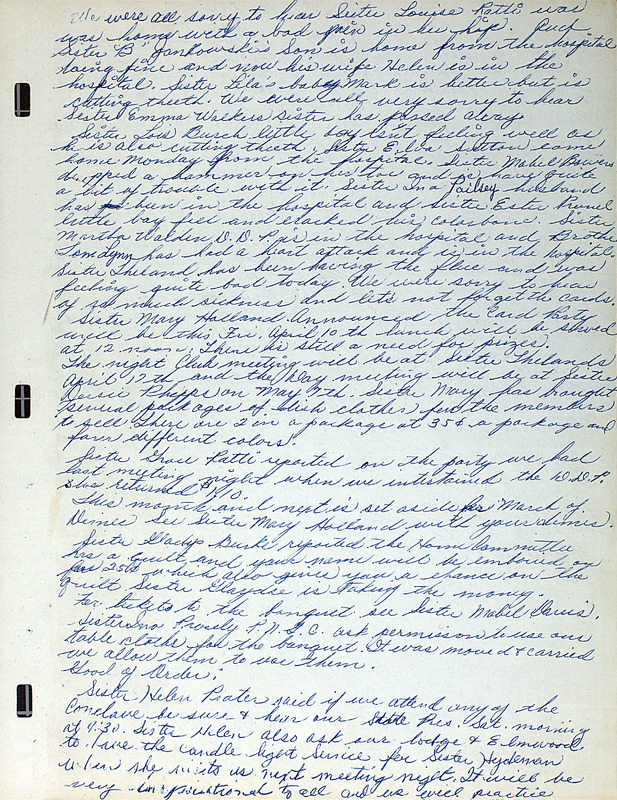 We were all sorry to hear Sister Louise Patti was
was home with a bad pain in her hip. And
Sister B Jankowski's Son is home from the hospital
doing fine and now his wife Helen is in the
hospital. Sister Lila's baby Mark is better but is
cutting theeth. We were all very sorry to hear
Sister Emma Walkers sister has passed away.
Sister Lois Burch little boy isn't feeling well as
he is also cutting theeth. Sister Elva Sutton came
home Monday from the hospital. Sister Mabel Bowers
dropped a hammer on her toe and is have quite
a bit of trouble with it. Sister Ina Pailsey husband
has been in the hospital and sister Ester
little boy fell and cracked his colorbone. Sister
Martha Walden, D.D.P. is in the hospital and Brother
Tom Lynn has had a heart attack and is in the hospital.
Sister Theland has been having the flue and was
feeling quite bad today. We were sorry to hear
of so much sickness and lets not forget the cards.
Sister Mary Holland Announced the Card Party
will be this Fri. April 10th lunch will be served
at 12 noon. There is still a need for prizes.
The night Club meeting will be at Sister Thelands
April 17th and the Day meeting will be at Sister
Dersie Phepps on May 7th. Sister Mary has brought
several packages of dish clothes for the members
to sell there are 2 in a package at 35¢ a package and
four different colors.
Sister Grace Patti reported on the party we had
last meeting night when we intertained the D.D.P.
She returned $1.10.
This month and next is set aside for March of
Dimes See Sister Mary Holland with your dimes.
Sister Gladys Burke reported the Home Committee
has a quilt and your name will be imbored on
for 25¢ which also gives you a chance on the
quilt Sister Claydse is taking the money.
For tickets to the banquet see Sister Mabel Davis.
Sister Ino Presely P.N.G.C. ask permission to use our
table cloths for the banquet. It was moved & carried
we allow them to use them.
Good of Order:
Sister Helen Prater said if we attend any of the
Conclave be sure & hear our State Pres. Sat. morning
at 9:30. Sister Helen also ask our lodge & Elmwood
to have the candle light Service for Sister Hydeman
when she visits us next meeting night. It will be
very inspirational to all and we will practice